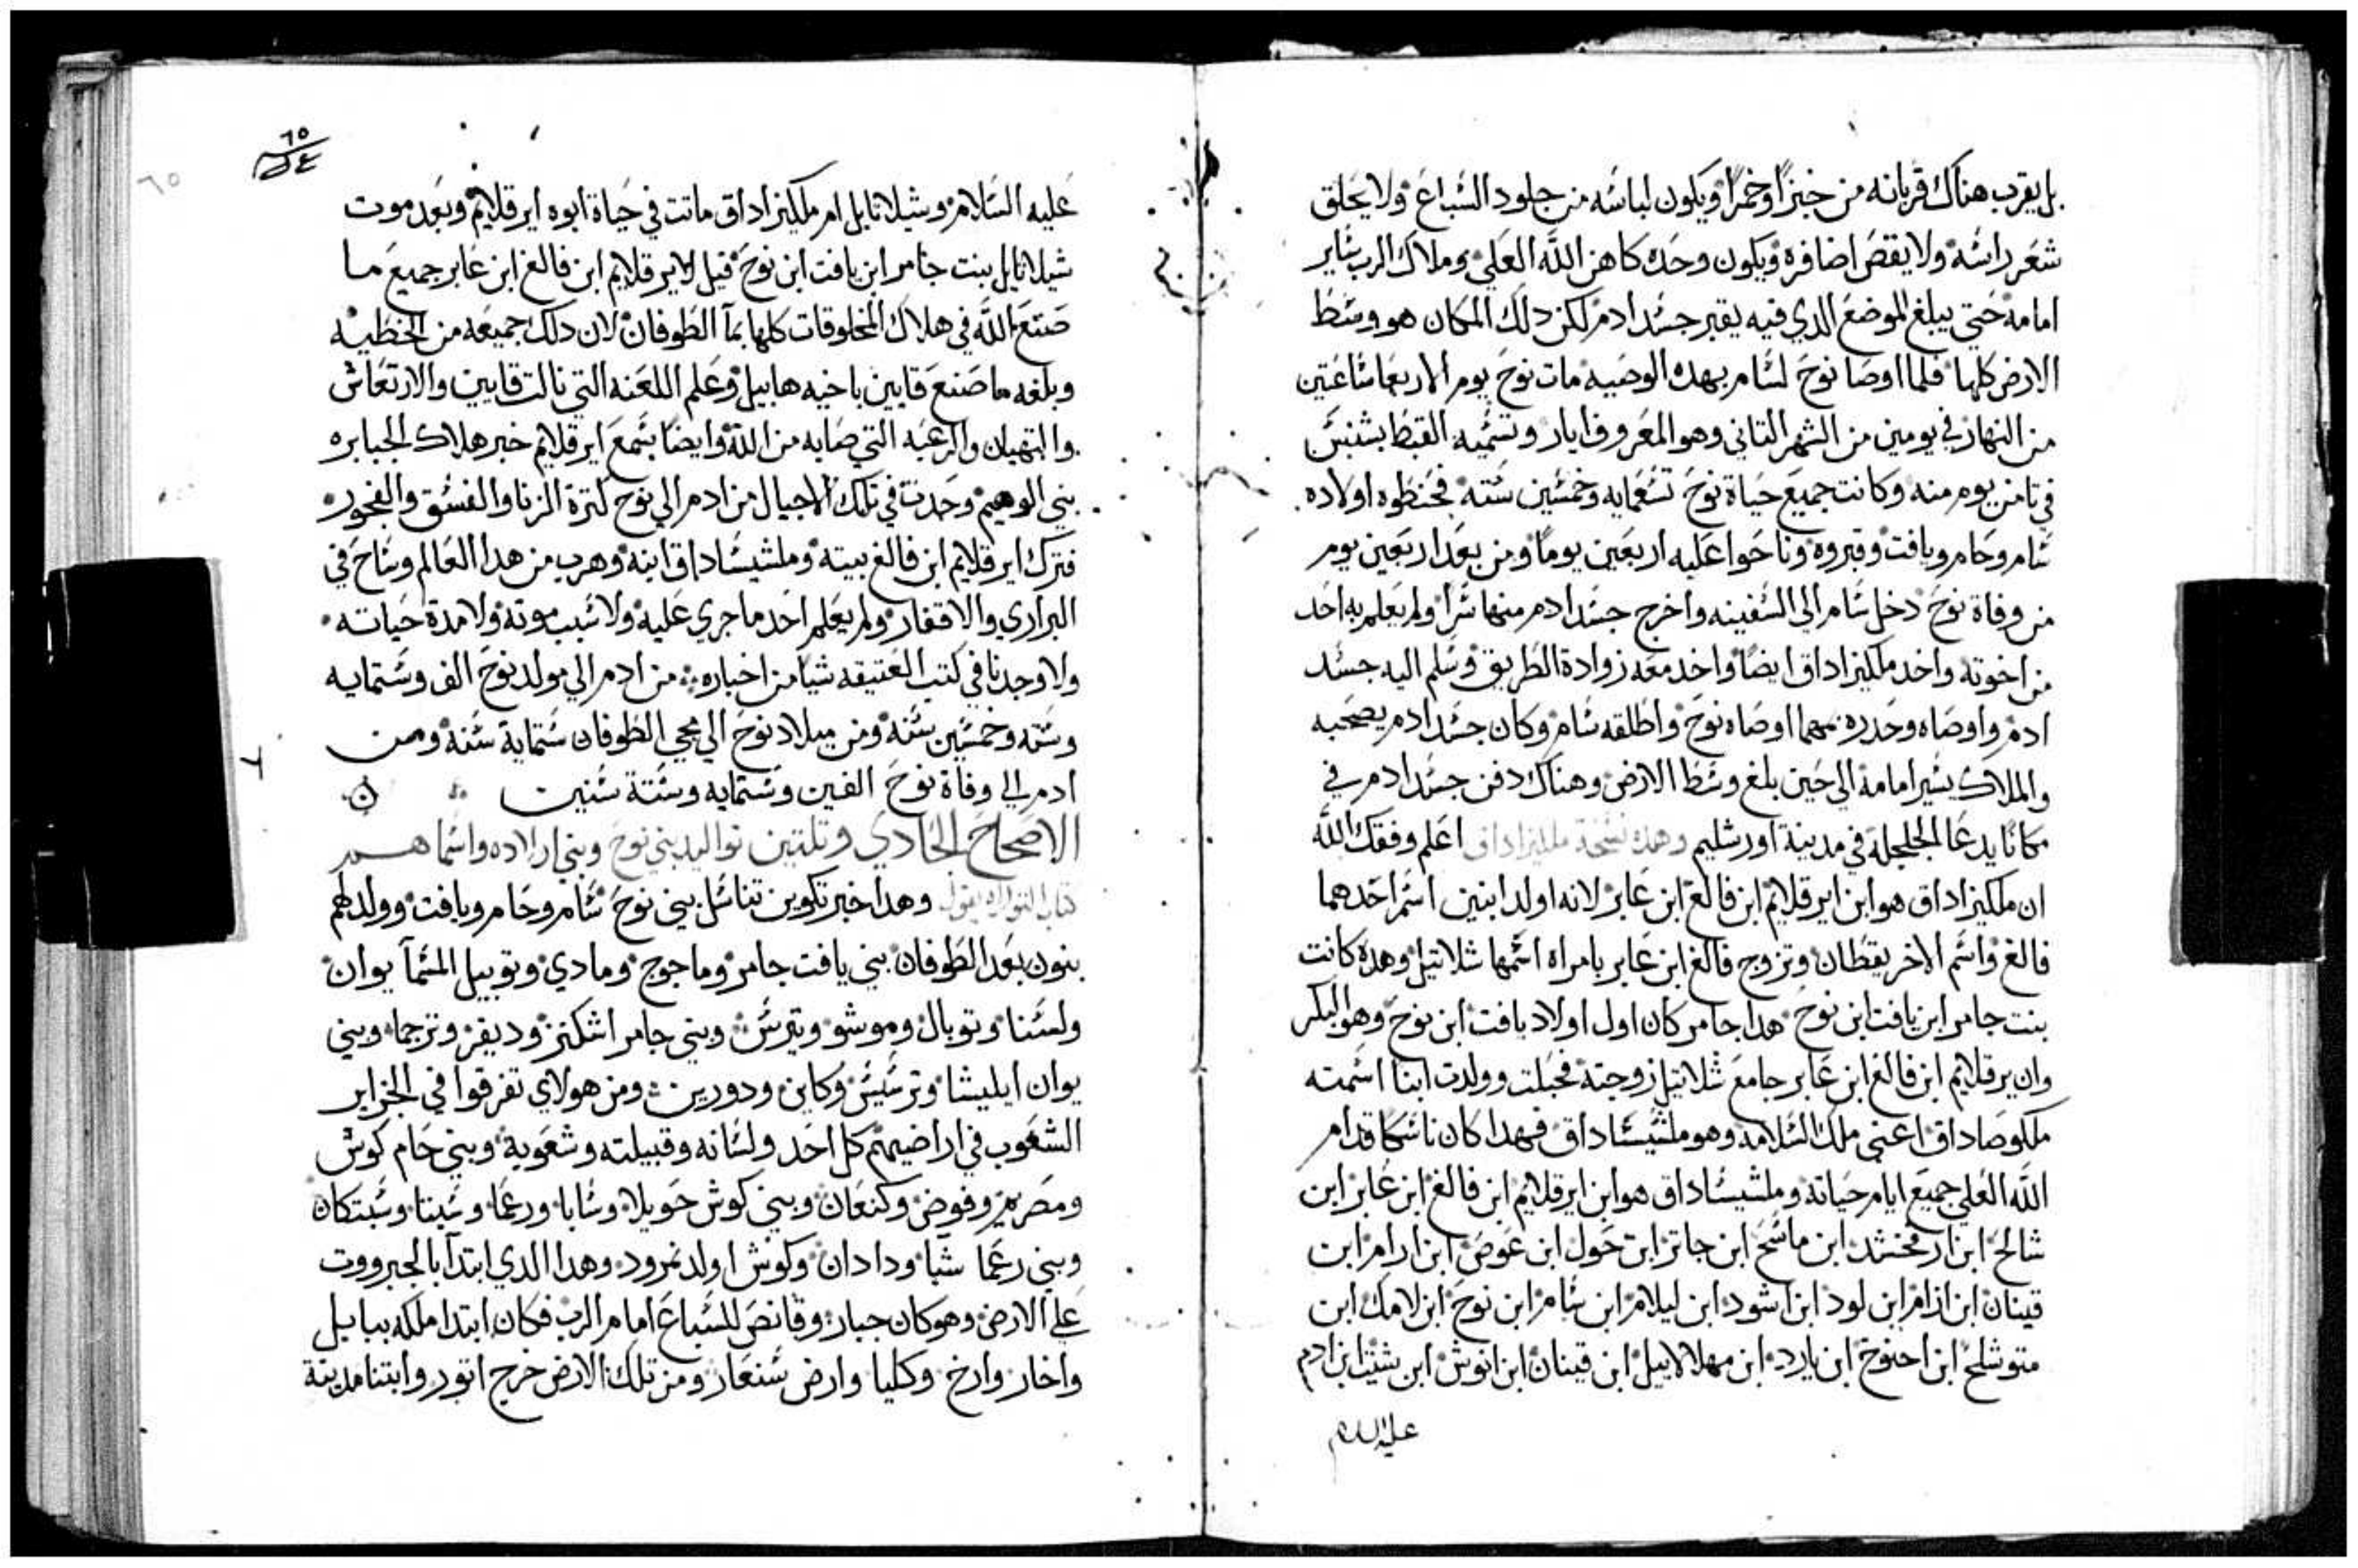 بل يقرب هناك قربانه من خبزًا وخمرًا ويكون لباسه من جلود السباع ولا يحلق
شعر راسه ولا يقص اضافره ويكون وحده كاهن الله العلي وملاك الرب ساير
امامه حتي يبلغ الموضع الدي فيه يقبر جسد ادم لكن دلك المكان هو وسط
الارض كلها فلما اوصا نوح لسام بهده الوصيه مات نوح يوم الاربعا ساعتين
من النهار في يومين من الشهر التاني وهو المعروف ايار وتسميه القبط بشنس
في تامن يوم منه وكانت جميع حياة نوح تسعمايه وخمسين سنه فحنطوه اولاده
سام وحام ويافت وقبروه وناحوا عليه اربعين يومًا ومن بعد اربعين يوم
من وفاة نوح دخل سام الي السفينه واخرج جسد ادم منها سرًا ولم يعلم به احد
من اخوته واخد ملكيزاداق ايضًا واخد معه زوادة الطريق وسلم اليه جسد
ادم واوصاه وحدره بمهما اوصاه نوح واطلقه سام وكان جسد ادم يصحبه
والملاك يسير امامه الي حين بلغ وسط الارض وهناك دفن جسد ادم في
مكانًا يدعا الجلجلة في مدينة اورشليم وهده نسخة ملكيزاداق اعلم وفقك الله
ان ملكيزاداق هو ابن ايرقلايم ابن فالغ ابن عابر لانه اولد ابنين اسم احدهما
فالغ واسم الاخر يقطان وتزوج فالغ ابن عابر بامراه اسمها شلاتيل وهده كانت
بنت جامر ابن يافت ابن نوح هدا جامر كان اول اولاد يافت ابن نوح وهو البكر
وان يرقلايم ابن فالغ ابن عابر جامع شلاتيل زوجته فحبلت وولدت ابنا اسمته
ملكو صاداق اعني ملك السلامه وهو ملشيساداق فهدا كان ناسكا قدام
الله العلي جميع ايام حياته وملشيساداق هو ابن ايرقلايم ابن فالغ ابن عابر ابن
شالح ابن ارفخشد ابن ماسح ابن جاتر ابن حول ابن عوض ابن ارام ابن
قينان ابن ادام ابن لود ابن اشود ابن ليلام ابن سام ابن نوح ابن لامك ابن
متوشلح ابن احنوخ ابن يارد ابن مهلالاييل ابن قينان ابن انوش ابن شيت ابن ادم
عليه السلام
٦٥
عليه السلام وشيلاتايل ام ملكيزاداق ماتت في حياة ابوه ايرقلايم وبعد موت
شيلاتايل بنت جامر ابن يافت ابن نوح قيل لايرقلايم ابن فالغ ابن عابر جميع ما
صنع الله في هلاك المخلوقات كلها بمآ الطوفان لان دلك جميعه من الخطيه
وبلغه ما صنع قايين باخيه هابيل وعلم اللعنه التي نالت قايين والارتعاش
والتهيان والرعبه التي صابه من الله وايضًا سمع ايرقلايم خبر هلاك الجبابره
بني الوهيم وحدت في تلك الاجيال من ادم الي نوح كترة الزنا والفسق والفجور
فترك ايرقلايم ابن فالغ بيته وملشيساداق ابنه وهرب من هدا العالم وساح في
البراري والاقفار ولم يعلم احد ما جري عليه ولا سبب موته ولا مدة حياته
ولا وجدنا في كتب العتيقه شيًا من اخباره من ادم الي مولد نوح الف وستمايه
وسته وخمسين سنه ومن ميلاد نوح الي مجي الطوفان ستماية سنه ومن
ادم الي وفاة نوح الفين وستمايه وستة سنين
الاصحاح الحادي وتلتين تواليد بني نوح وبني اولاده واسماهم
كتاب التوراه يقول وهدا خبر تكوين تناسل بني نوح سام وحام ويافت وولد لهم
بنون بعد الطوفان بني يافت جامر وماجوج ومادي وتوبيل المسمآ يوان
ولسنا وتوبال وموشو وتيرس وبني جامر اشكنز وديفر وترجما وبني
يوان ايليشا وترسيس وكاين ودورين ومن هولاي تفرقوا في الجزاير
الشعوب في اراضيهم كل احد ولسانه وقبيلته وشعوبه وبني حام كوش
ومصريم وفوض وكنعان وبني كوش حويلا وسابا ورعما وسبتا وسبتكان
وبني رعما سبا ودادان وكوش اولد نمرود وهدا الدي ابتدآ بالجبرووت
علي الارض وهو كان جبار وقانص للسباع امام الرب فكان ابتدا ملكه ببابل
واخار وارخ وكليا وارض سنعار ومن تلك الارض خرج اتور وابتنا مدينة